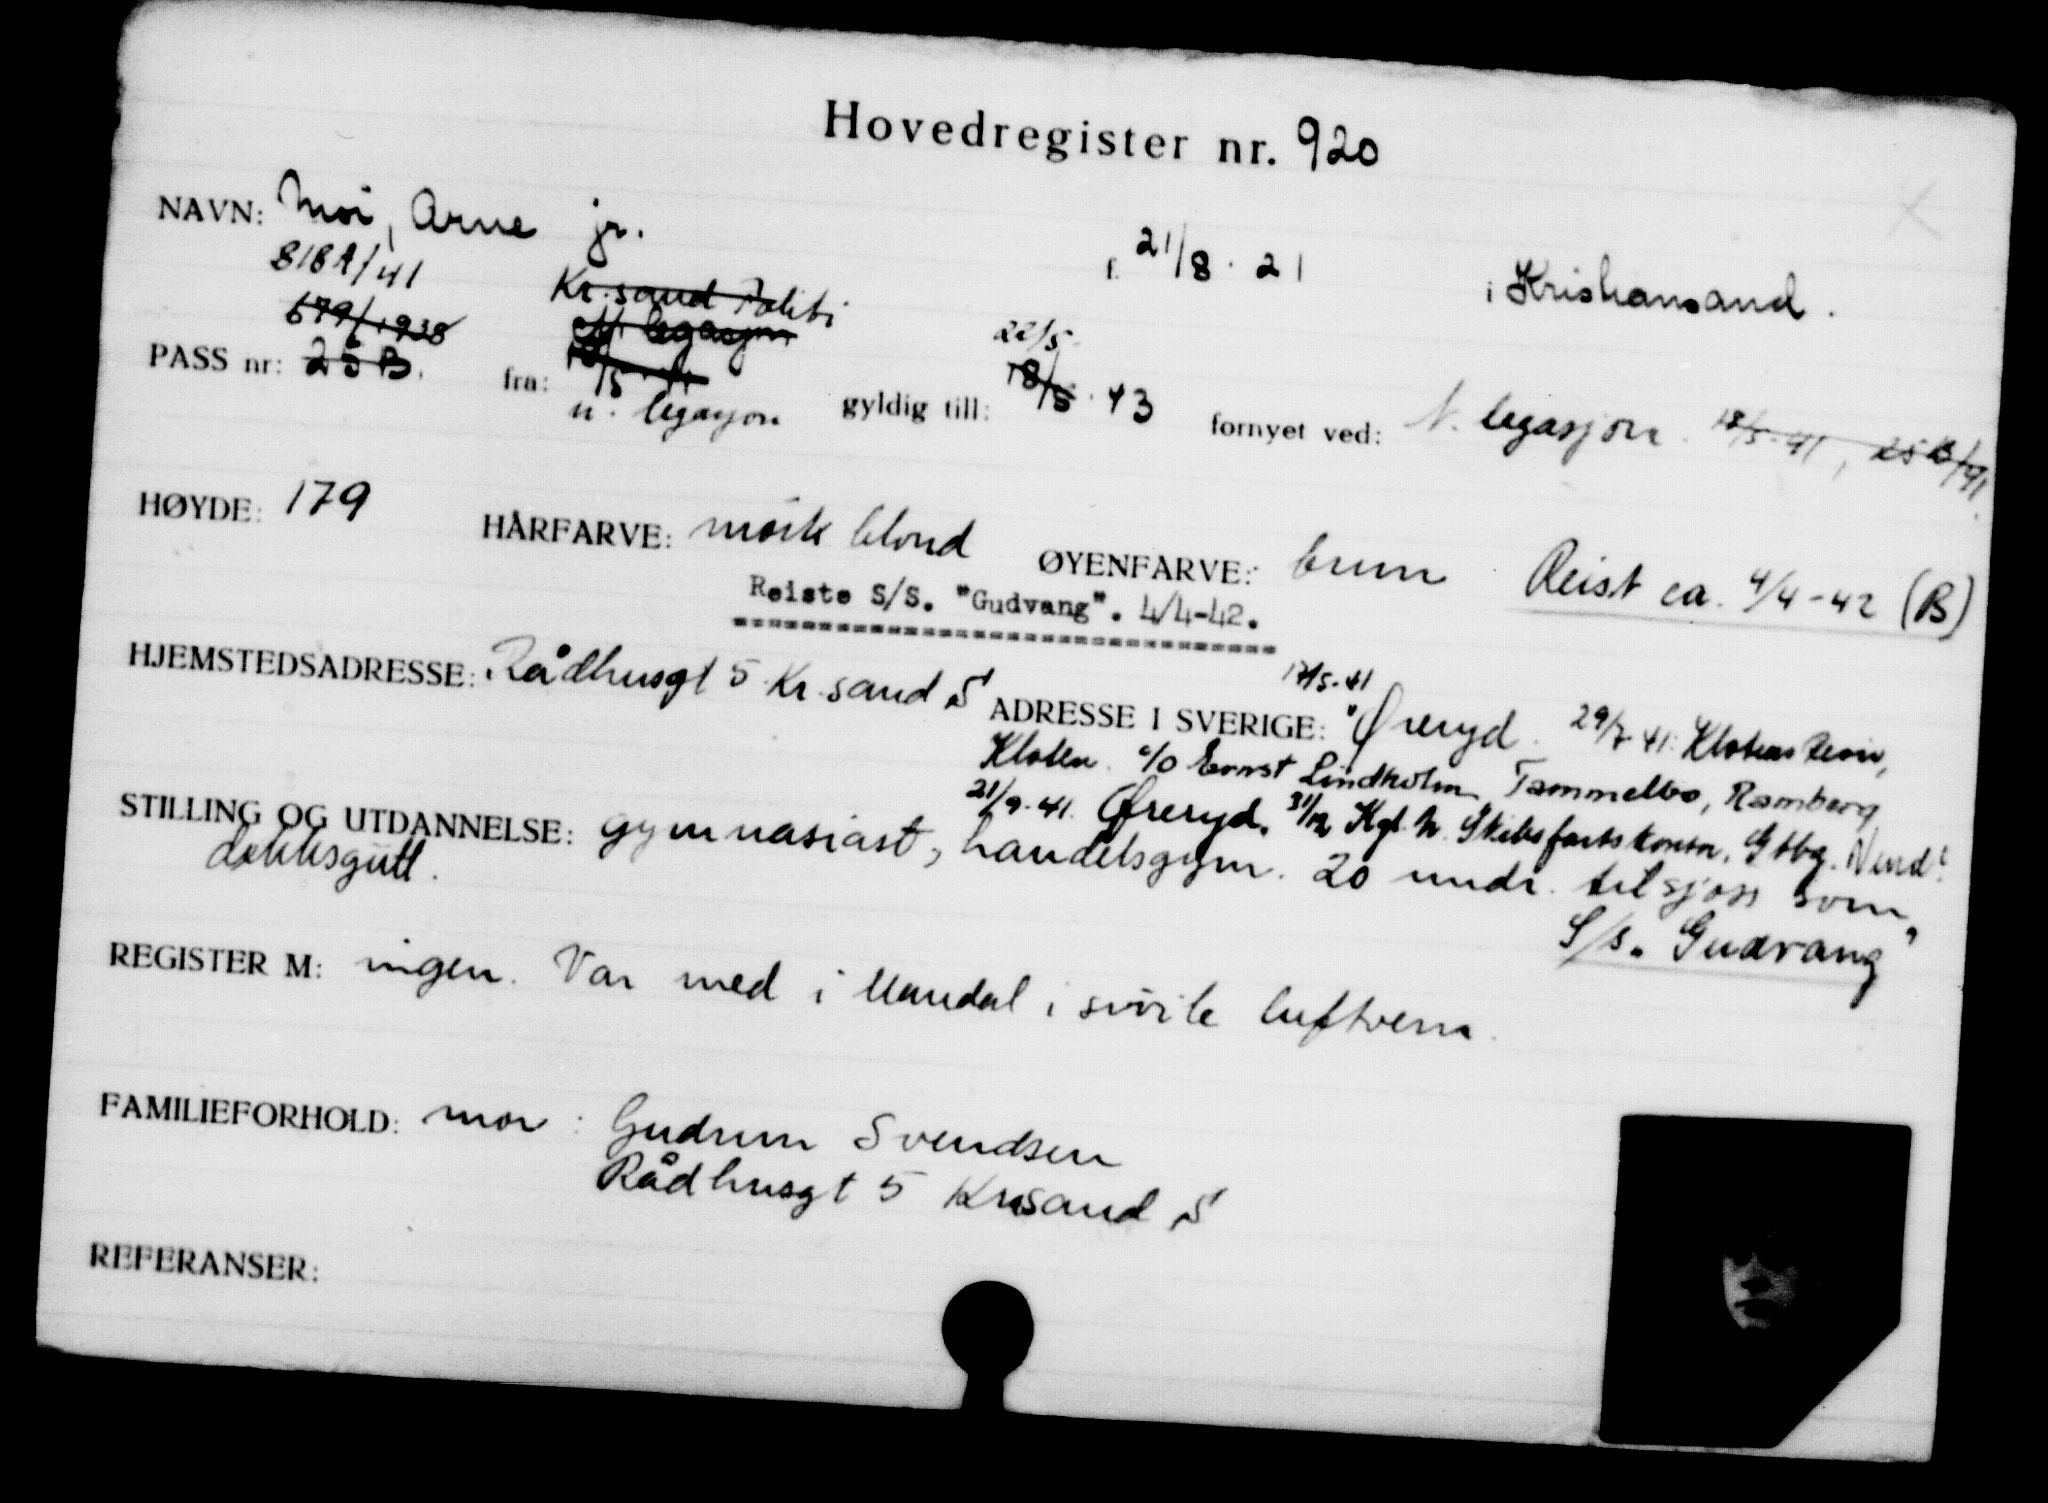 Hovedregister nr. 920
NAVN: Moi, Arne jr. f. 21/8 . 21 i Kristiansand.
818A/41 Kr.sand Politi
679/1938 legasjon 22/5
PASS nr: 25 B. fra: 18/5 41 gyldig till: 18/5 . 43 fornyet ved: N. legasjon. 18/5-41, 25B/41
n. legasjon
HØYDE: 179 HÅRFARVE: mørk blond ØYENFARVE: brun Reist ca. 4/4-42 (B)
Reiste S/S. "Gudvang". 4/4-42.
HJEMSTEDSADRESSE: Rådhusgt 5 Kr.sand S
17/5-41
ADRESSE I SVERIGE: Øreryd. 29/7 41:
Kloten. c/o Ernst Lindholm, Tammelbo, Ramberg
21/9-41. Øreryd. 31/12 Kgl. N. Skibsfartskontor, Gtbg.
STILLING OG UTDANNELSE: gymnasiast, handelsgym. 20 mndr. til sjøss som
dekksgutt.
S/S. "Gudvang"
REGISTER M: ingen. Var med i Mandal i sivile luftvern.
FAMILIEFORHOLD: mor: Gudrun Svendsen
Rådhusgt 5 Krsand S
REFERANSER: